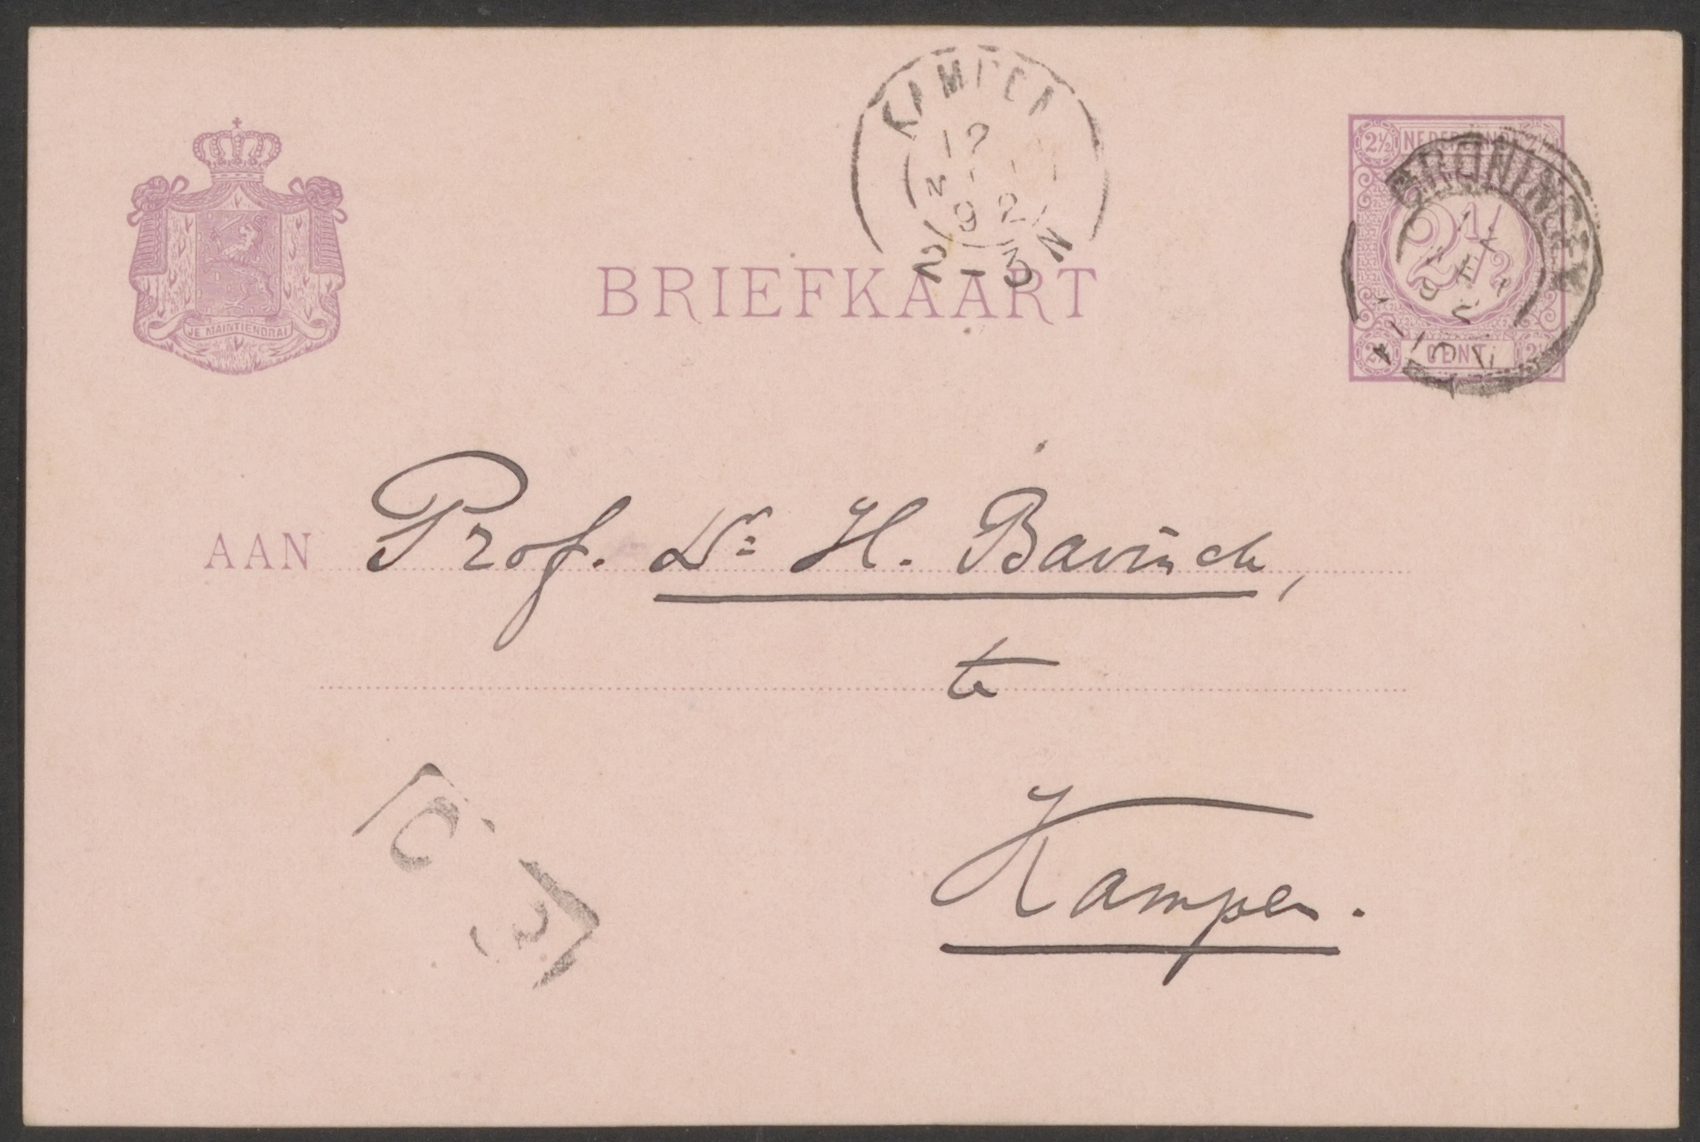 KAMPEN
12
92
2-3N
NEDERLAND
2½
2½
CENT
GRONINGEN
JE MAINTIENDRAI
BRIEFKAART
AAN Prof. Dr. H. Bavinck,
te
Kampen.